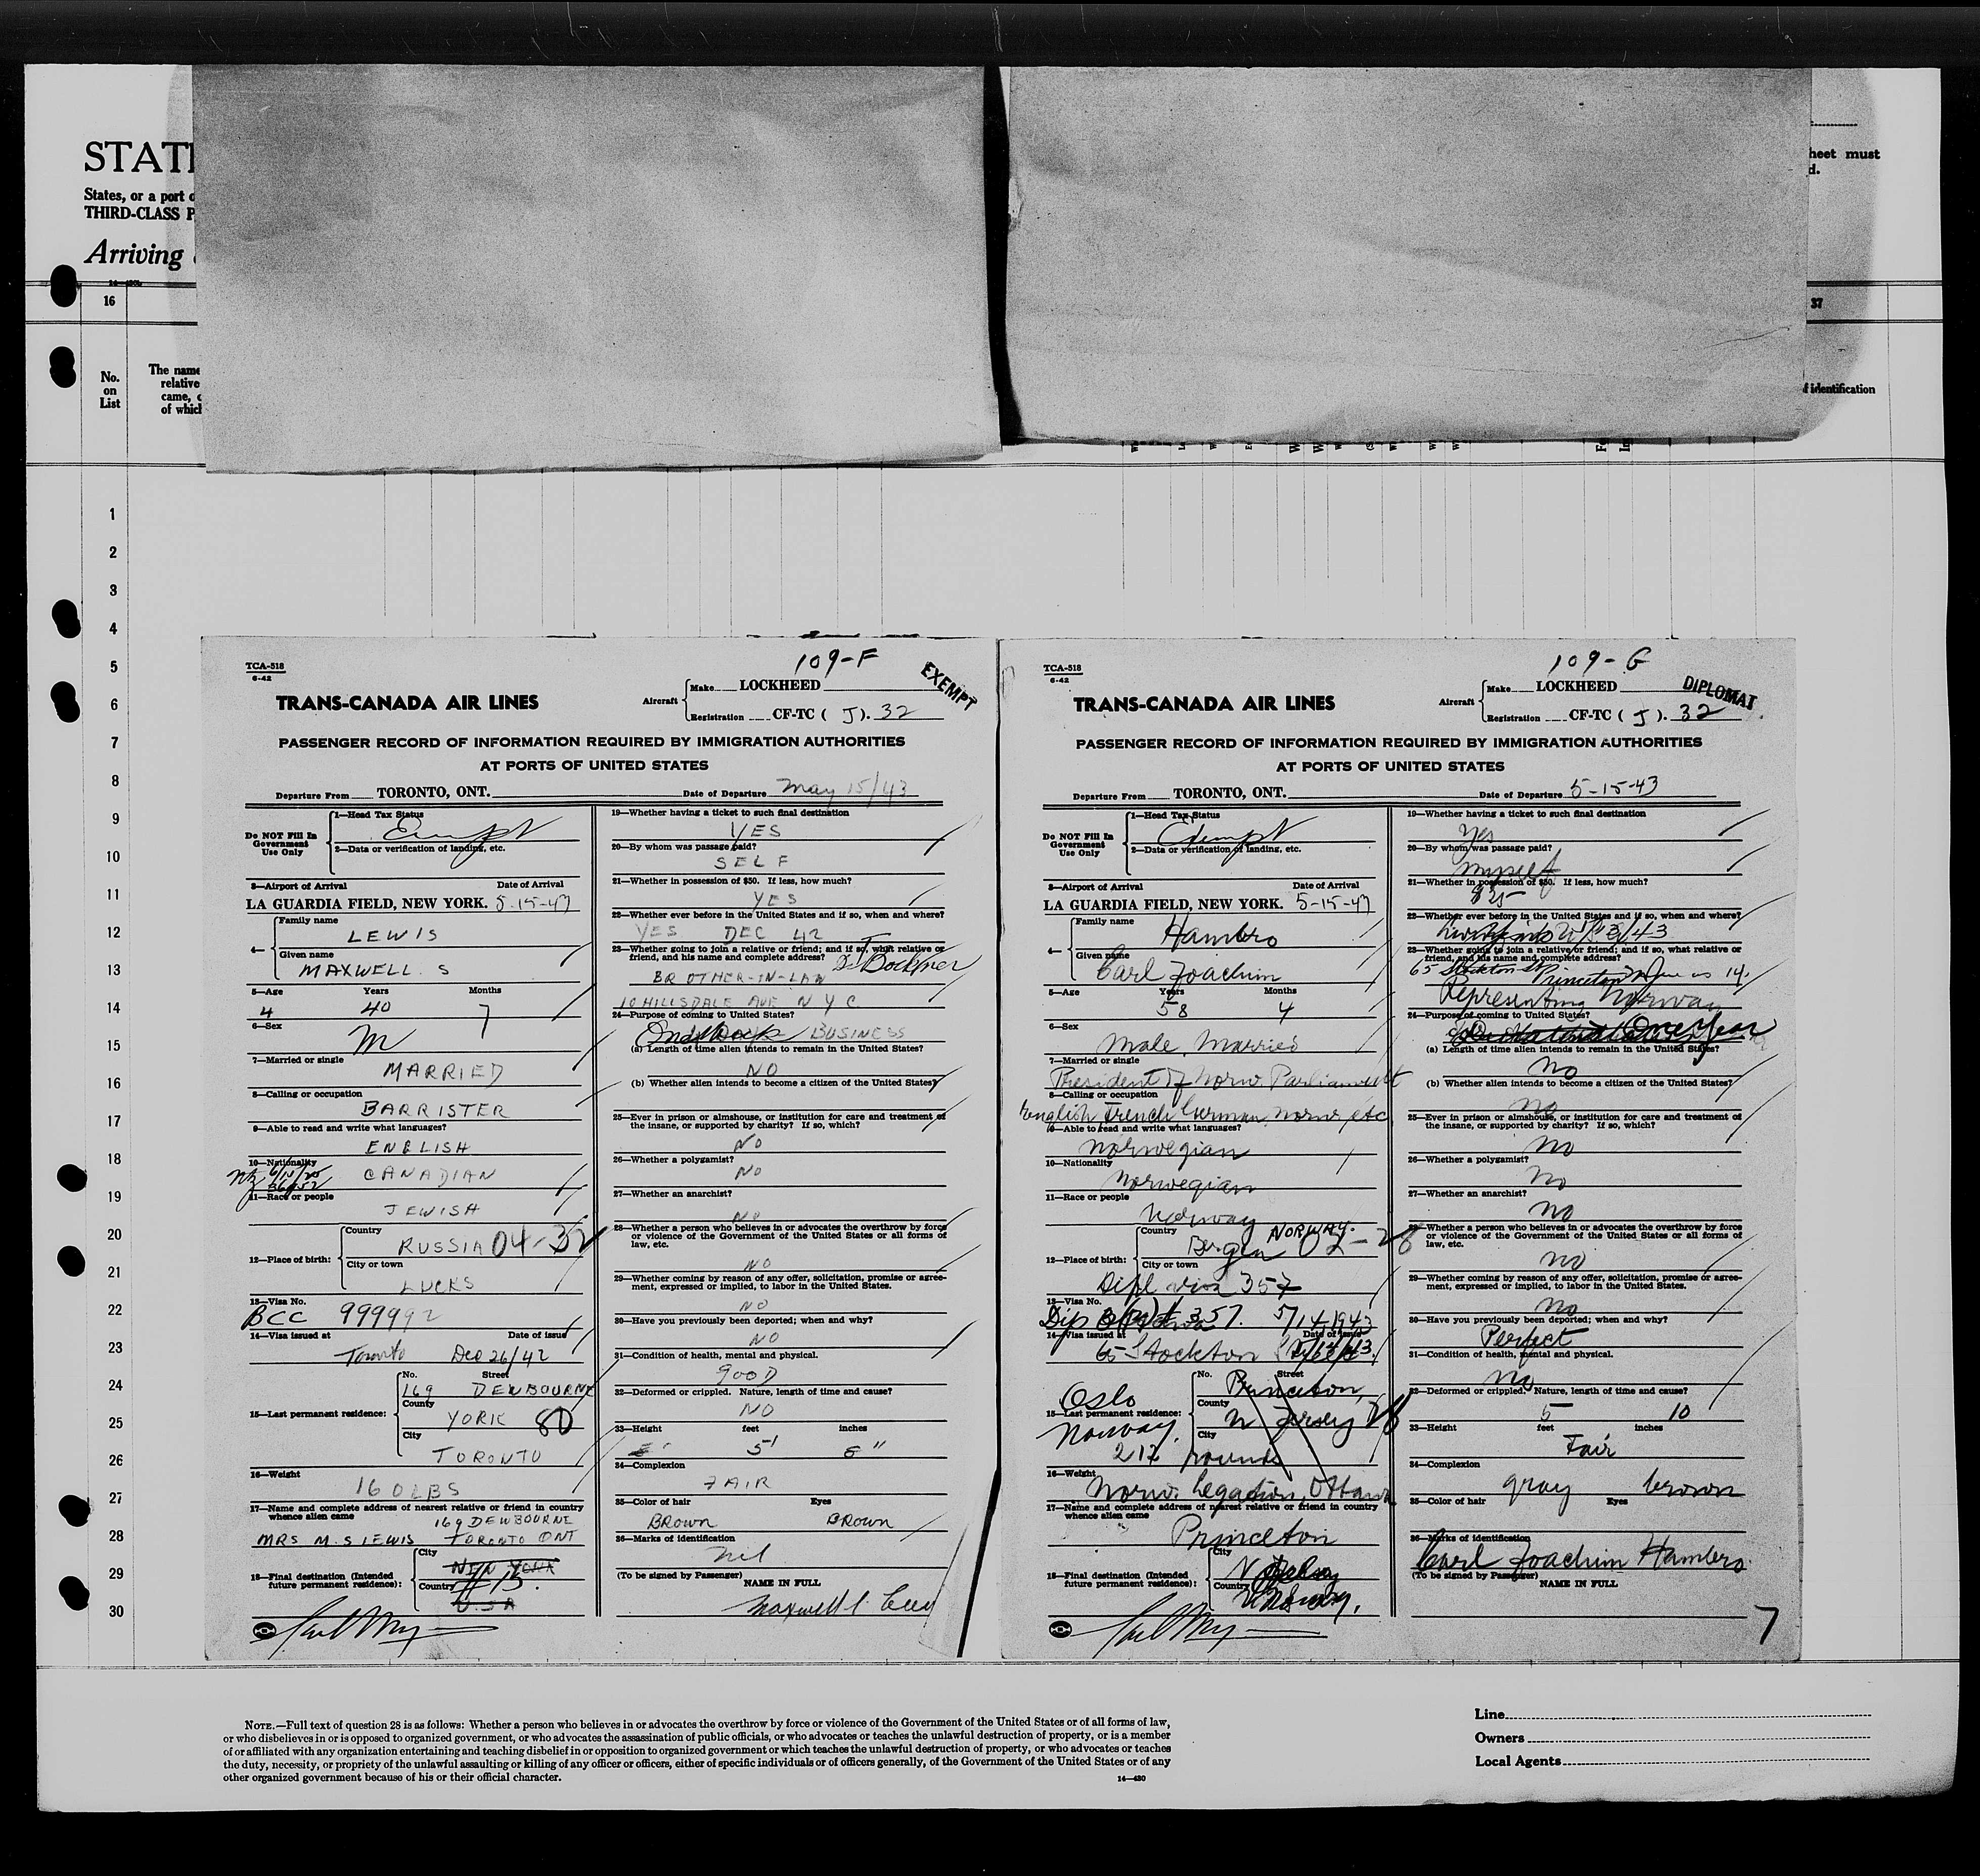 STATE
States, or a port o
THIRD-CLASS P
Arriving
heet must
d.
16
37
No.
on
List
The name
relative
came, o
of which
f identification
1
2
3
4
5
6
7
8
9
10
11
12
13
14
15
16
17
18
19
20
21
22
23
24
25
26
27
28
29
30
TCA-518
6-42
109-F
EXEMPT
TRANS-CANADA AIR LINES
Aircraft
Make LOCKHEED
Registration CF-TC ( J ). 32
PASSENGER RECORD OF INFORMATION REQUIRED BY IMMIGRATION AUTHORITIES
AT PORTS OF UNITED STATES
Departure From TORONTO, ONT. Date of Departure May 15/43
Do NOT Fill In
Government
Use Only
1—Head Tax Status
Exempt
2—Data or verification of landing, etc.
3—Airport of Arrival Date of Arrival
LA GUARDIA FIELD, NEW YORK. 5-15-43
4—
Family name
LEWIS
Given name
MAXWELL. S
5—Age Years Months
4 40 7
6—Sex
M
7—Married or single
MARRIED
8—Calling or occupation
BARRISTER
9—Able to read and write what languages?
ENGLISH
10—Nationality
CANADIAN
11—Race or people
JEWISH
12—Place of birth:
Country
RUSSIA 04-32
City or town
LUCKS
13—Visa No.
BCC 999992
14—Visa issued at Date of issue
Toronto Dec 26/42
15—Last permanent residence:
No. Street
169 DEWBOURNE
County
YORK 80
City
TORONTO
16—Weight
160 LBS
17—Name and complete address of nearest relative or friend in country
whence alien came
169 DEWBOURNE
MRS M. S LEWIS TORONTO ONT
18—Final destination (Intended
future permanent residence):
City
NEW YORK
Country
U.S.A
19—Whether having a ticket to such final destination
YES
20—By whom was passage paid?
SELF
21—Whether in possession of $50. If less, how much?
YES
22—Whether ever before in the United States and if so, when and where?
YES DEC 42
23—Whether going to join a relative or friend; and if so, what relative or
friend, and his name and complete address?
BROTHER-IN-LAW
10 HILLSDALE AVE N Y C
24—Purpose of coming to United States?
BUSINESS
(a) Length of time alien intends to remain in the United States?
NO
(b) Whether alien intends to become a citizen of the United States?
25—Ever in prison or almshouse, or institution for care and treatment of
the insane, or supported by charity? If so, which?
NO
26—Whether a polygamist?
NO
27—Whether an anarchist?
NO
28—Whether a person who believes in or advocates the overthrow by force
or violence of the Government of the United States or all forms of
law, etc.
NO
29—Whether coming by reason of any offer, solicitation, promise or agree-
ment, expressed or implied, to labor in the United States.
NO
30—Have you previously been deported; when and why?
NO
31—Condition of health, mental and physical.
GOOD
32—Deformed or crippled. Nature, length of time and cause?
NO
33—Height feet inches
5' 6"
34—Complexion
FAIR
35—Color of hair Eyes
BROWN BROWN
36—Marks of identification
nil
(To be signed by Passenger)
NAME IN FULL
TCA-518
6-42
109-G
DIPLOMAT
TRANS-CANADA AIR LINES
Aircraft
Make LOCKHEED
Registration CF-TC ( J ). 32
PASSENGER RECORD OF INFORMATION REQUIRED BY IMMIGRATION AUTHORITIES
AT PORTS OF UNITED STATES
Departure From TORONTO, ONT. Date of Departure 5-15-43
Do NOT Fill In
Government
Use Only
1—Head Tax Status
Exempt
2—Data or verification of landing, etc.
3—Airport of Arrival Date of Arrival
LA GUARDIA FIELD, NEW YORK. 5-15-43
4—
Family name
Hambro
Given name
Carl Joachim
5—Age Years Months
58 4
6—Sex
Male. Married
7—Married or single
President of Norw. Parliament
8—Calling or occupation
English, French, German, Norw. etc
9—Able to read and write what languages?
Norwegian
10—Nationality
Norwegian
11—Race or people
Norway
12—Place of birth:
Country NORWAY.
Bergen 02-28
City or town
Dipl visa 357
13—Visa No.
Dip 357. 5/14-1943
14—Visa issued at Date of issue
65 Stockton
15—Last permanent residence:
Oslo
Norway.
No. Street
Princeton,
County
N Jersey
City
212 pounds
16—Weight
Norw. Legation, Ottawa
17—Name and complete address of nearest relative or friend in country
whence alien came
Princeton
18—Final destination (Intended
future permanent residence):
City
Country
19—Whether having a ticket to such final destination
Yes
20—By whom was passage paid?
myself
21—Whether in possession of $50. If less, how much?
$25-
22—Whether ever before in the United States and if so, when and where?
23—Whether going to join a relative or friend; and if so, what relative or
friend, and his name and complete address?
65 Stockton St. Princeton
Representing Norway
24—Purpose of coming to United States?
One Year
(a) Length of time alien intends to remain in the United States?
No
(b) Whether alien intends to become a citizen of the United States?
no
25—Ever in prison or almshouse, or institution for care and treatment of
the insane, or supported by charity? If so, which?
No
26—Whether a polygamist?
No
27—Whether an anarchist?
No
28—Whether a person who believes in or advocates the overthrow by force
or violence of the Government of the United States or all forms of
law, etc.
no
29—Whether coming by reason of any offer, solicitation, promise or agree-
ment, expressed or implied, to labor in the United States.
no
30—Have you previously been deported; when and why?
Perfect
31—Condition of health, mental and physical.
no
32—Deformed or crippled. Nature, length of time and cause?
5 10
33—Height feet inches
Fair
34—Complexion
gray brown
35—Color of hair Eyes
36—Marks of identification
Carl Joachim Hambro
(To be signed by Passenger)
NAME IN FULL
7
NOTE.—Full text of question 28 is as follows: Whether a person who believes in or advocates the overthrow by force or violence of the Government of the United States or of all forms of law,
or who disbelieves in or is opposed to organized government, or who advocates the assassination of public officials, or who advocates or teaches the unlawful destruction of property, or is a member
of or affiliated with any organization entertaining and teaching disbelief in or opposition to organized government or which teaches the unlawful destruction of property, or who advocates or teaches
the duty, necessity, or propriety of the unlawful assaulting or killing of any officer or officers, either of specific individuals or of officers generally, of the Government of the United States or of any
other organized government because of his or their official character.
14—430
Line
Owners
Local Agents